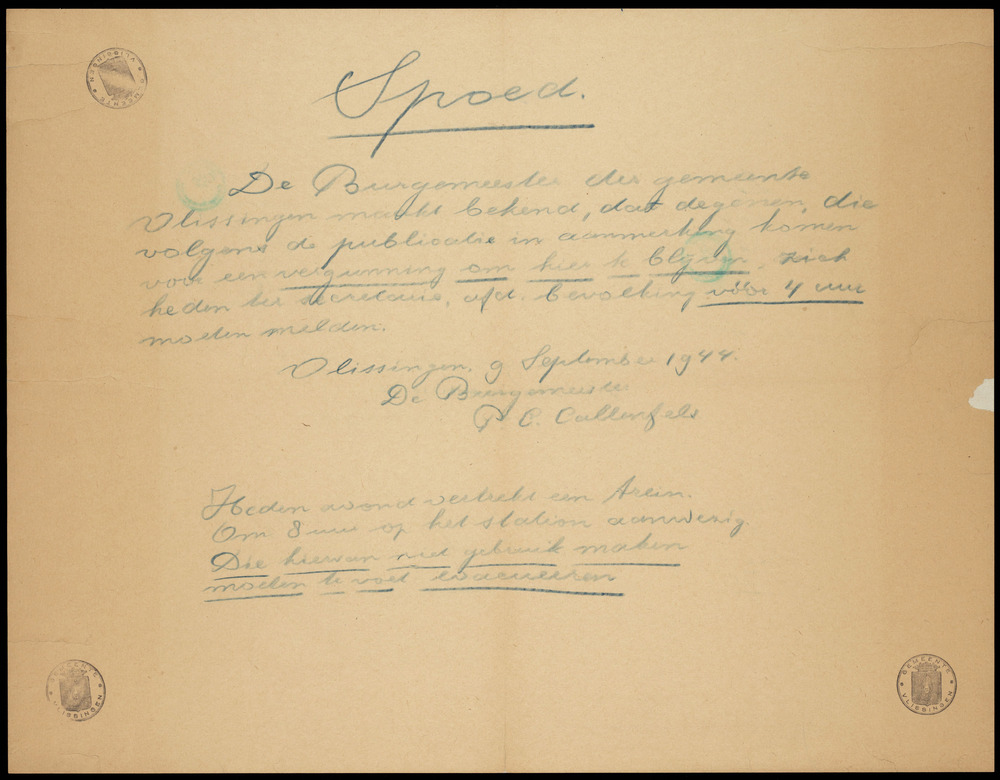 GEMEENTE VLISSINGEN
Spoed.
De Burgemeester der gemeente
Vlissingen maakt bekend, dat degenen, die
volgens de publicatie in aanmerking komen
voor een vergunning om hier te blijven, zich
heden ter secretarie, afd. bevolking vóór 4 uur
moeten melden.
Vlissingen, 9 September 1944.
De Burgemeester
P. C. Callenfels
Heden avond vertrekt een trein.
Om 8 uur op het station aanwezig.
Die hiervan niet gebruik maken
moeten te voet evacueeren
GEMEENTE VLISSINGEN
GEMEENTE VLISSINGEN